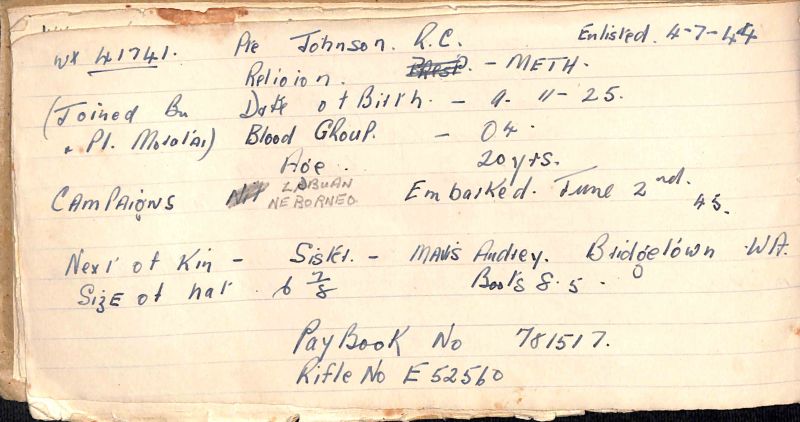 WX 41741. Pte Johnson. R.C. Enlisted. 4-7-44
Religion. - METH.
(Joined Bn Date of Birth. - 9. 11-25.
& Pl. Morotai) Blood Group. - O4.
Age. 20 yrs.
CAMPAIGNS LABUAN Embarked. June 2nd. 45.
NE BORNEO
Next of Kin - Sister. - MAVIS Audrey. Bridgetown WA.
Size of hat. 6 7/8 Boots 8.5.
PayBook No 781517.
Rifle No E 52560